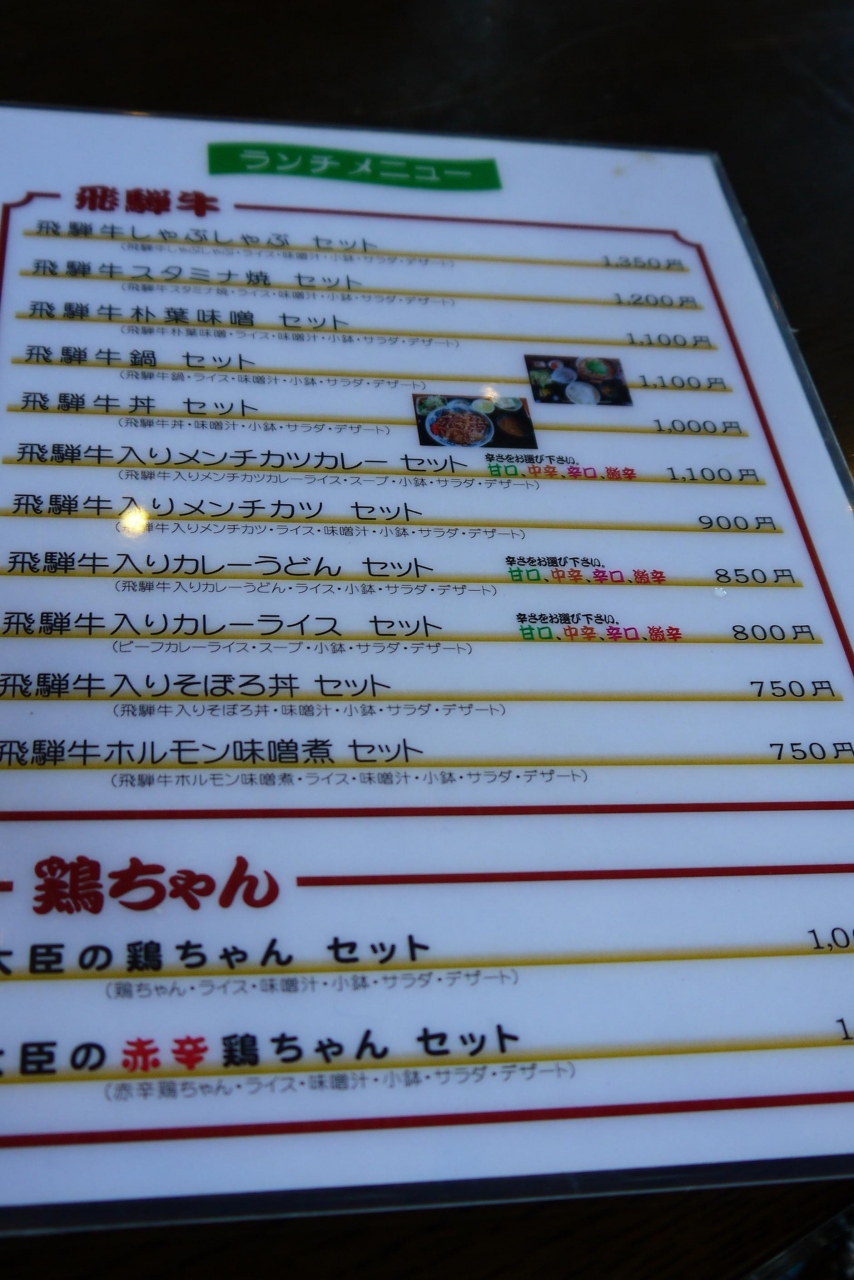 ランチメニュー
飛騨牛
飛騨牛しゃぶしゃぶ セット 1,350円
(飛騨牛しゃぶしゃぶ・ライス・味噌汁・小鉢・サラダ・デザート)
飛騨牛スタミナ焼 セット 1,200円
(飛騨牛スタミナ焼・ライス・味噌汁・小鉢・サラダ・デザート)
飛騨牛朴葉味噌 セット 1,100円
(飛騨牛朴葉味噌・ライス・味噌汁・小鉢・サラダ・デザート)
飛騨牛鍋 セット 1,100円
(飛騨牛鍋・ライス・味噌汁・小鉢・サラダ・デザート)
飛騨牛丼 セット 1,000円
(飛騨牛丼・味噌汁・小鉢・サラダ・デザート)
飛騨牛入りメンチカツカレー セット 辛さをお選び下さい。 1,100円
甘口、中辛、辛口、激辛
(飛騨牛入りメンチカツカレーライス・スープ・小鉢・サラダ・デザート)
飛騨牛入りメンチカツ セット 900円
(飛騨牛入りメンチカツ・ライス・味噌汁・小鉢・サラダ・デザート)
飛騨牛入りカレーうどん セット 辛さをお選び下さい。 850円
甘口、中辛、辛口、激辛
(飛騨牛入りカレーうどん・ライス・小鉢・サラダ・デザート)
飛騨牛入りカレーライス セット 辛さをお選び下さい。 800円
甘口、中辛、辛口、激辛
(ビーフカレーライス・スープ・小鉢・サラダ・デザート)
飛騨牛入りそぼろ丼 セット 750円
(飛騨牛入りそぼろ丼・味噌汁・小鉢・サラダ・デザート)
飛騨牛ホルモン味噌煮 セット 750円
(飛騨牛ホルモン味噌煮・ライス・味噌汁・小鉢・サラダ・デザート)
鶏ちゃん
大臣の鶏ちゃん セット 1,0
(鶏ちゃん・ライス・味噌汁・小鉢・サラダ・デザート)
大臣の赤辛鶏ちゃん セット 1
(赤辛鶏ちゃん・ライス・味噌汁・小鉢・サラダ・デザート)